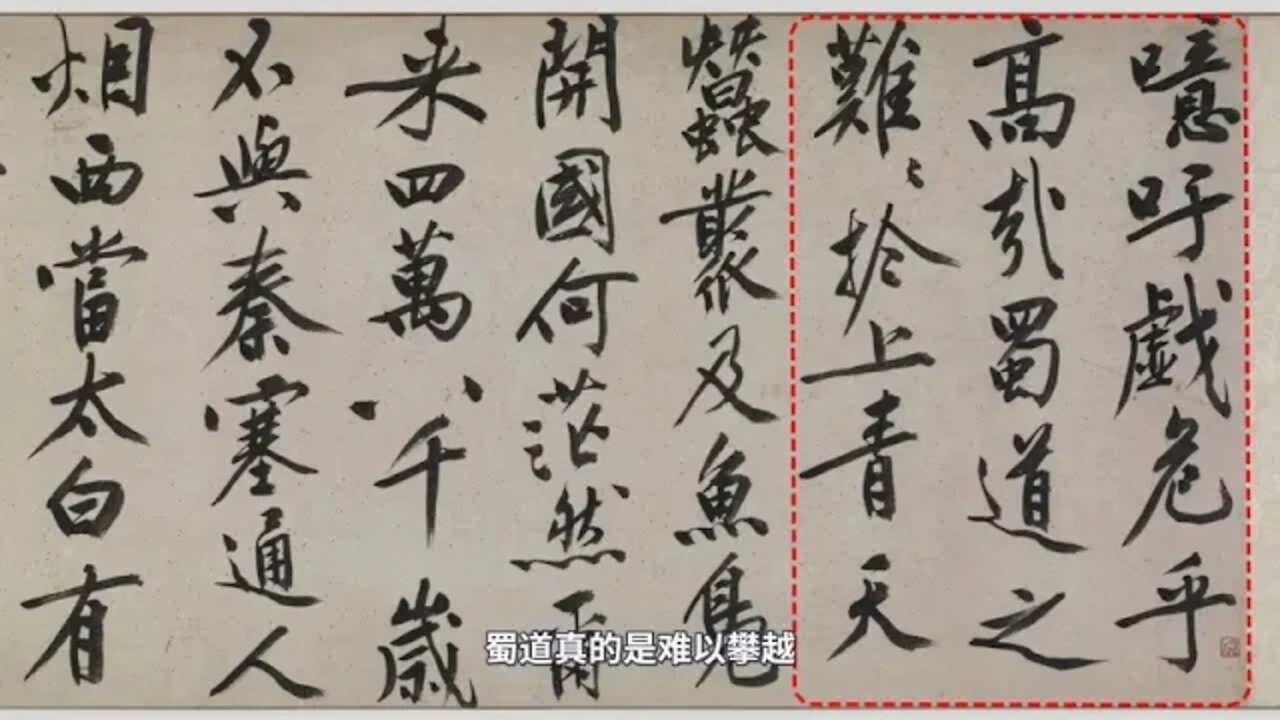 噫吁戯危乎
高哉蜀道之
難〻於上青天
蠶叢及魚鳧
開國何茫然爾
来四萬八千歲
不與秦塞通人
烟西當太白有
蜀道真的是难以攀越